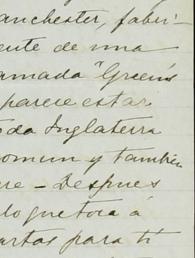 anchester, fabri-
ente de una
amada "Green's
parece estar
oda Inglaterra
omun y tambien
re - Despues
lo que toca á
artas para ti